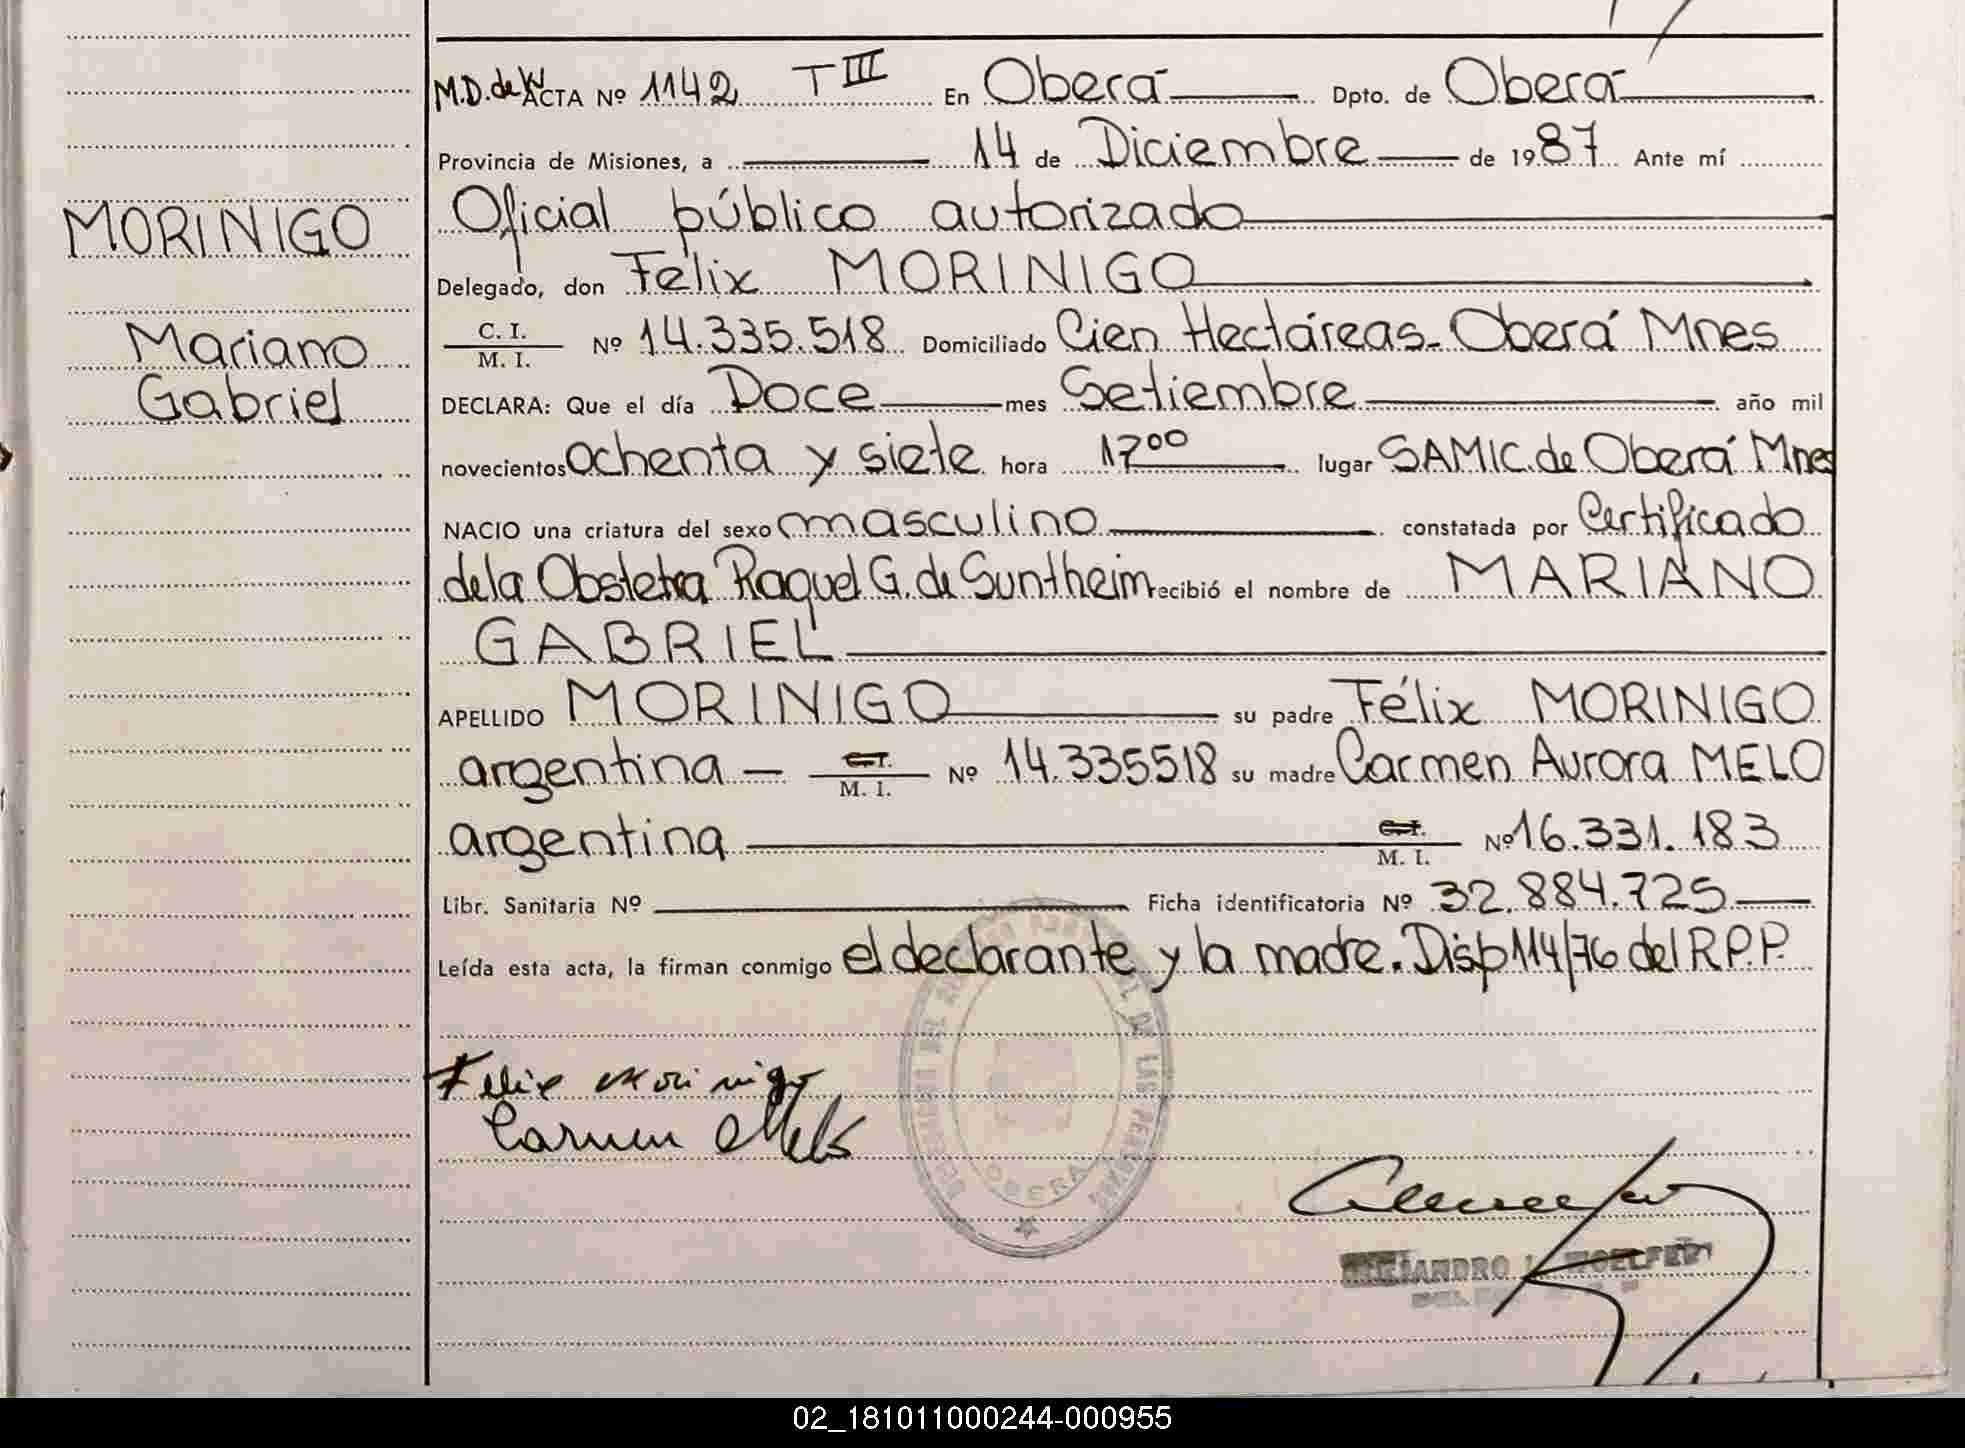 M.D. de W ACTA Nº 1142 T III En Oberá Dpto. de Oberá
Provincia de Misiones, a 14 de Diciembre de 1987 Ante mí
Oficial público autorizado
MORINIGO
Delegado, don Felix MORINIGO
C. I. / M. I. Nº 14.335.518 Domiciliado Cien Hectáreas - Oberá Mnes
Mariano
Gabriel
DECLARA: Que el día Doce mes Setiembre año mil
novecientos ochenta y siete hora 17⁰⁰ lugar SAMIC. de Oberá Mnes
NACIO una criatura del sexo masculino constatada por Certificado
de la Obstetra Raquel G. de Suntheim recibió el nombre de MARIANO
GABRIEL
APELLIDO MORINIGO su padre Félix MORINIGO
argentina — C. I. / M. I. Nº 14.335518 su madre Carmen Aurora MELO
argentina C. I. / M. I. Nº 16.331.183
Libr. Sanitaria Nº Ficha identificatoria Nº 32.884.725
Leída esta acta, la firman conmigo el declarante y la madre. Disp 114/76 del R.P.P.
Felix Morinigo
Carmen Melo
DE LAS PERSONAS
OBERA
02_181011000244-000955